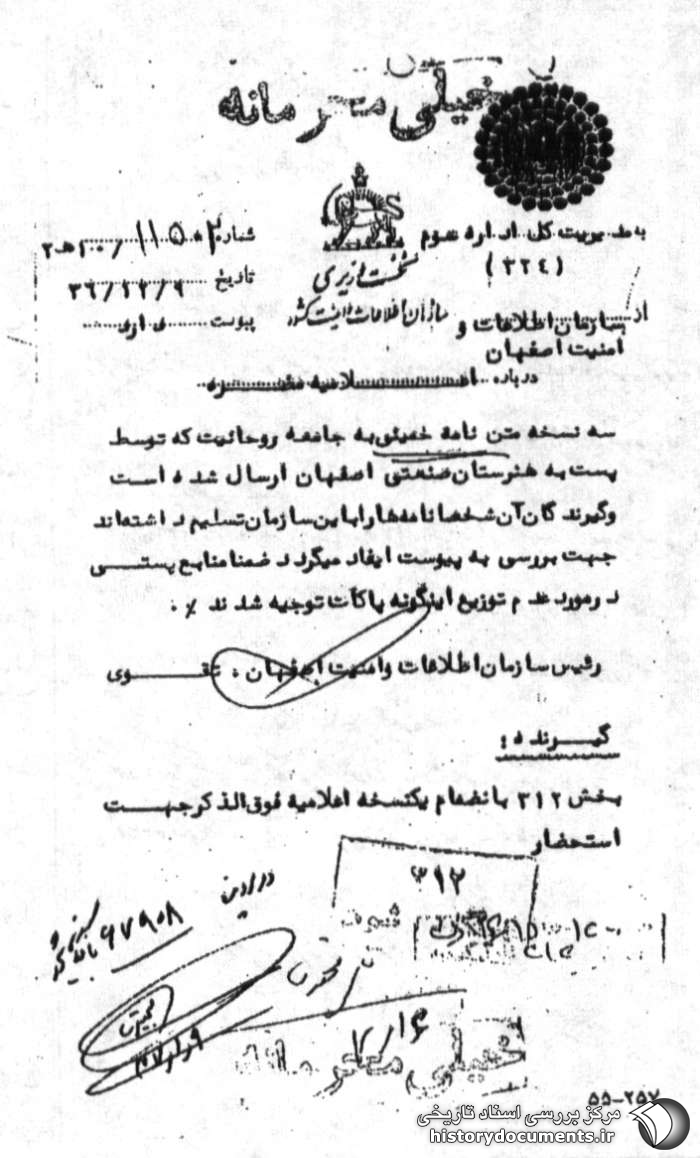 خیلی محرمانه
به مدیریت کل اداره سوم
(۳۲۴)
از سازمان اطلاعات و
امنیت اصفهان
نخست وزیری
سازمان اطلاعات و امنیت کشور
شماره ۱۱۵۰۳/۲۰۰هـ
تاریخ ۳۶/۱۲/۹
پیوست دارد
درباره اعلامیه مضره
سه نسخه متن نامه خمینی به جامعه روحانیت که توسط
پست به هنرستان صنعتی اصفهان ارسال شده است
وگیرندگان آن شخصا نامه ها را باین سازمان تسلیم داشته‌اند
جهت بررسی به پیوست ایفاد میگردد ضمنا منابع پستی
در مورد عدم توزیع اینگونه پاکات توجیه شدند ٪.
رئیس سازمان اطلاعات وامنیت اصفهان . تقوی
گیرنده :
بخش ۳۱۲ بانضمام یکنسخه اعلامیه فوق‌الذکر جهت
استحضار
۳۱۲
۶۷۹۰۸
۷/۱۶
خیلی محرمانه
۵۵-۲۵۷
مرکز بررسی اسناد تاریخی
historydocuments.ir